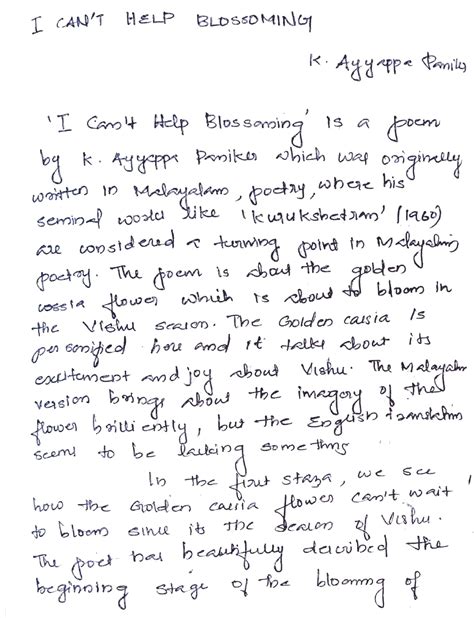 I CAN'T HELP BLOSSOMING
K. Ayyappa Paniker
'I Can't Help Blossoming' is a poem
by K. Ayyappa Paniker which was originally
written in Malayalam, poetry, where his
seminal works like 'Kurukshetram' (1960)
are considered a turning point in Malayalam
poetry. The poem is about the golden
cassia flower which is about to bloom in
the Vishu season. The Golden cassia is
personified here and it talks about its
excitement and joy about Vishu. The Malayalam
version brings about the imagery of the
flower brilliently, but the English translation
seems to be lacking something
In the first staza, we see
how the Golden cassia flower can't wait
to bloom since its the season of Vishu.
The poet has beautifully described the
beginning stage of the blooming of